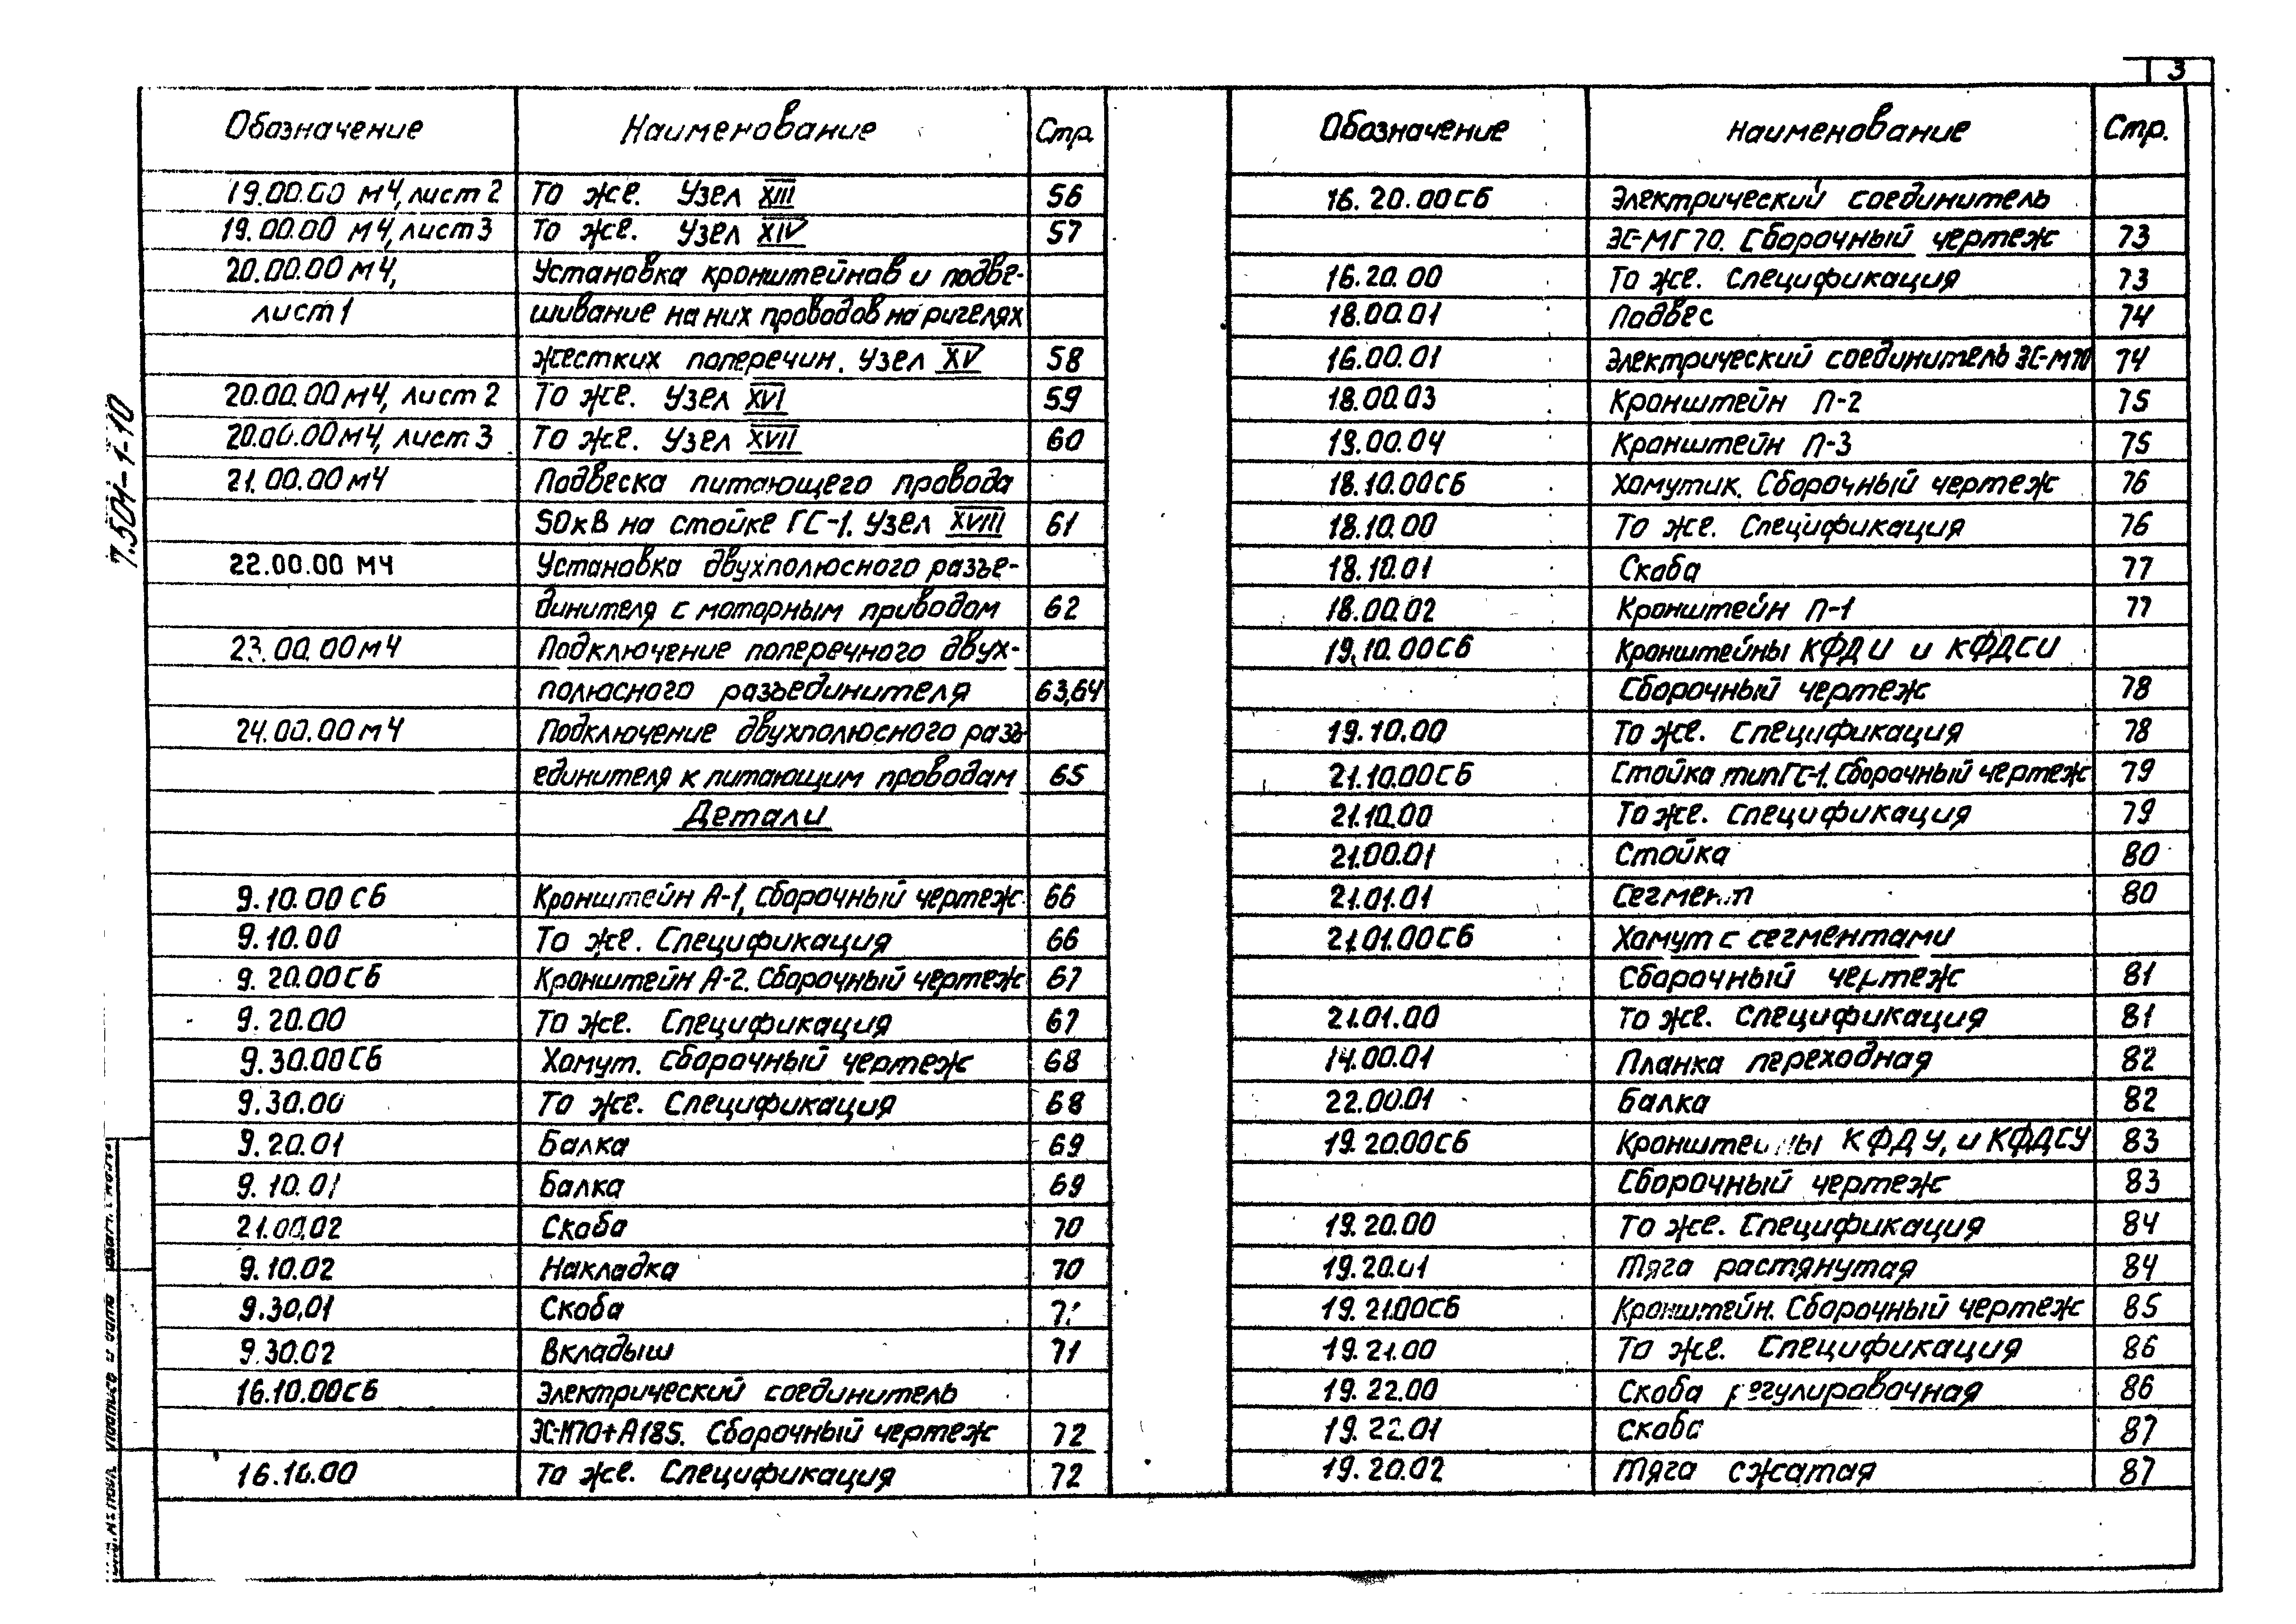 3
Обозначение Наименование Стр.
19.00.00 МЧ, лист 2 То же. Узел XIII 56
19.00.00 МЧ, лист 3 То же. Узел XIV 57
20.00.00 МЧ, Установка кронштейнов и подве-
лист 1 шивание на них проводов на ригелях
жестких поперечин. Узел XV 58
20.00.00 МЧ, лист 2 То же. Узел XVI 59
20.00.00 МЧ, лист 3 То же. Узел XVII 60
21.00.00 МЧ Подвеска питающего провода
50кВ на стойке ГС-1. Узел XVIII 61
22.00.00 МЧ Установка двухполюсного разъе-
динителя с моторным приводом 62
23.00.00 МЧ Подключение поперечного двух-
полюсного разъединителя 63,64
24.00.00 МЧ Подключение двухполюсного разъ-
единителя к питающим проводам 65
Детали
9.10.00 СБ Кронштейн А-1, Сборочный чертеж 66
9.10.00 То же. Спецификация 66
9.20.00 СБ Кронштейн А-2. Сборочный чертеж 67
9.20.00 То же. Спецификация 67
9.30.00 СБ Хомут. Сборочный чертеж 68
9.30.00 То же. Спецификация 68
9.20.01 Балка 69
9.10.01 Балка 69
21.00.02 Скоба 70
9.10.02 Накладка 70
9.30.01 Скоба
9.30.02 Вкладыш 71
16.10.00 СБ Электрический соединитель
ЭС-М70+А185. Сборочный чертеж 72
16.10.00 То же. Спецификация 72
Обозначение Наименование Стр.
16.20.00 СБ Электрический соединитель
ЭС-МГ70. Сборочный чертеж 73
16.20.00 То же. Спецификация 73
18.00.01 Подвес 74
16.00.01 Электрический соединитель ЭС-М70 74
18.00.03 Кронштейн П-2 75
18.00.04 Кронштейн П-3 75
18.10.00 СБ Хомутик. Сборочный чертеж 76
18.10.00 То же. Спецификация 76
18.10.01 Скоба 77
18.00.02 Кронштейн П-1 77
19.10.00 СБ Кронштейны КФДИ и КФДСИ
Сборочный чертеж 78
19.10.00 То же. Спецификация 78
21.10.00 СБ Стойка тип ГС-1. Сборочный чертеж 79
21.10.00 То же. Спецификация 79
21.00.01 Стойка 80
21.01.01 Сегмент 80
21.01.00 СБ Хомут с сегментами
Сборочный чертеж 81
21.01.00 То же. Спецификация 81
14.00.01 Планка переходная 82
22.00.01 Балка 82
19.20.00 СБ Кронштейны КФДУ, и КФДСУ 83
Сборочный чертеж 83
19.20.00 То же. Спецификация 84
19.20.01 Тяга растянутая 84
19.21.00 СБ Кронштейн. Сборочный чертеж 85
19.21.00 То же. Спецификация 86
19.22.00 Скоба регулировочная 86
19.22.01 Скоба 87
19.20.02 Тяга сжатая 87
7.501-1-10